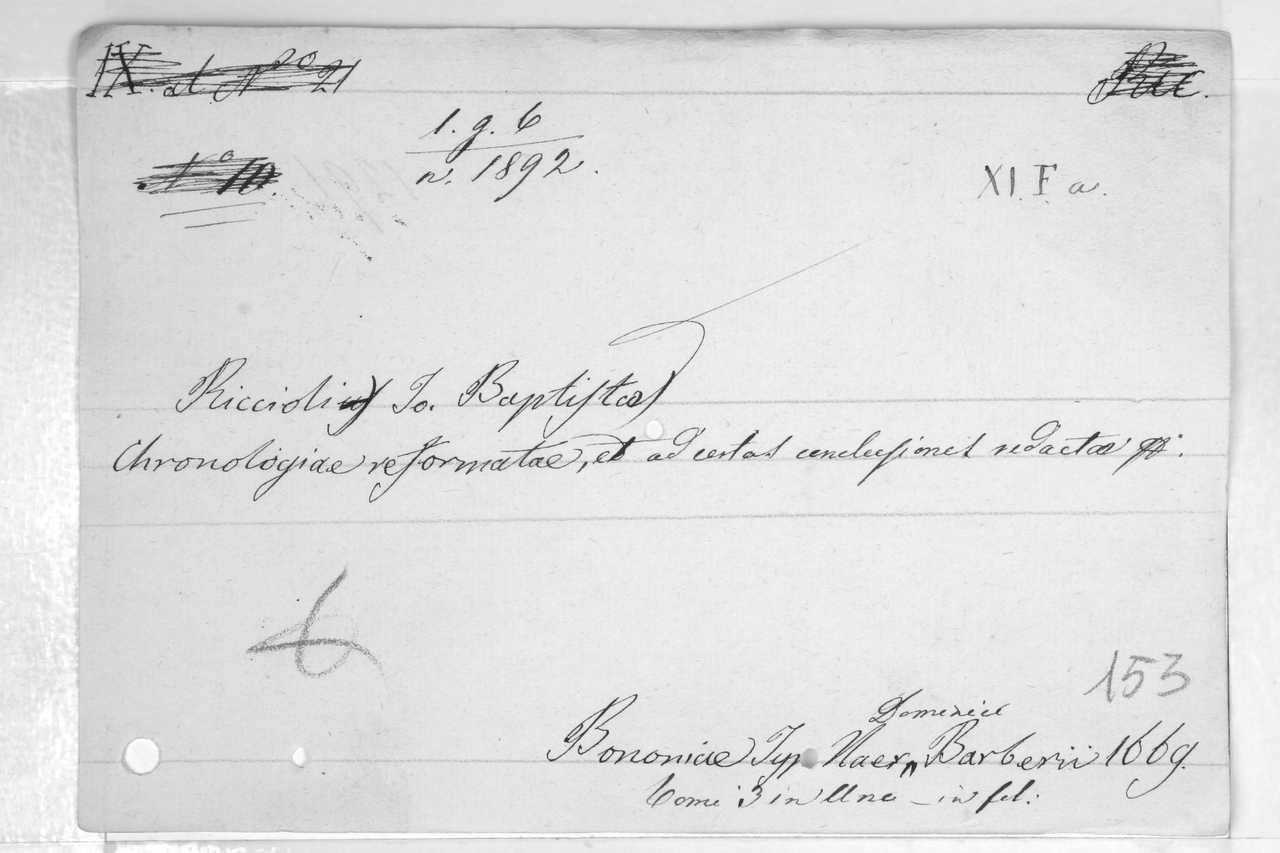 IX. at Nº 21
1. g. 6
n. 1892.
Nº 10.
XI. F. a.
Ricciolius Jo. Baptista
Chronologiae reformatae, et ad certas conclusiones redactae
6
153
Dominici
Bononiae Typ Haer, Barberii 1669.
Tomi 3 in Uno – in fol: